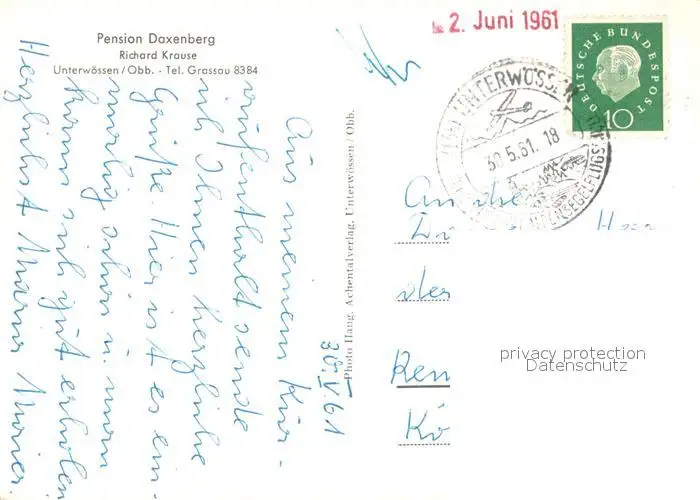 Pension Daxenberg
Richard Krause
Unterwössen / Obb. - Tel. Grassau 8384
2. Juni 1961
DEUTSCHE BUNDESPOST
10
UNTERWÖSSEN
30.5.61.18
SEGELFLUG
30. V. 61
Aus meinem Kür-
aufenthalt sende
ich Ihnen herzliche
Grüße. Hier ist es ein-
malig schön u. man
kann sich gut erholen.
Herzlichst
Photo Haug, Achentalverlag, Unterwössen / Obb.
An
der
Ren
Kö
privacy protection
Datenschutz